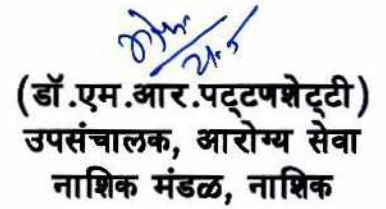 (डॉ.एम.आर.पट्टणशेट्टी)
उपसंचालक, आरोग्य सेवा
नाशिक मंडळ, नाशिक